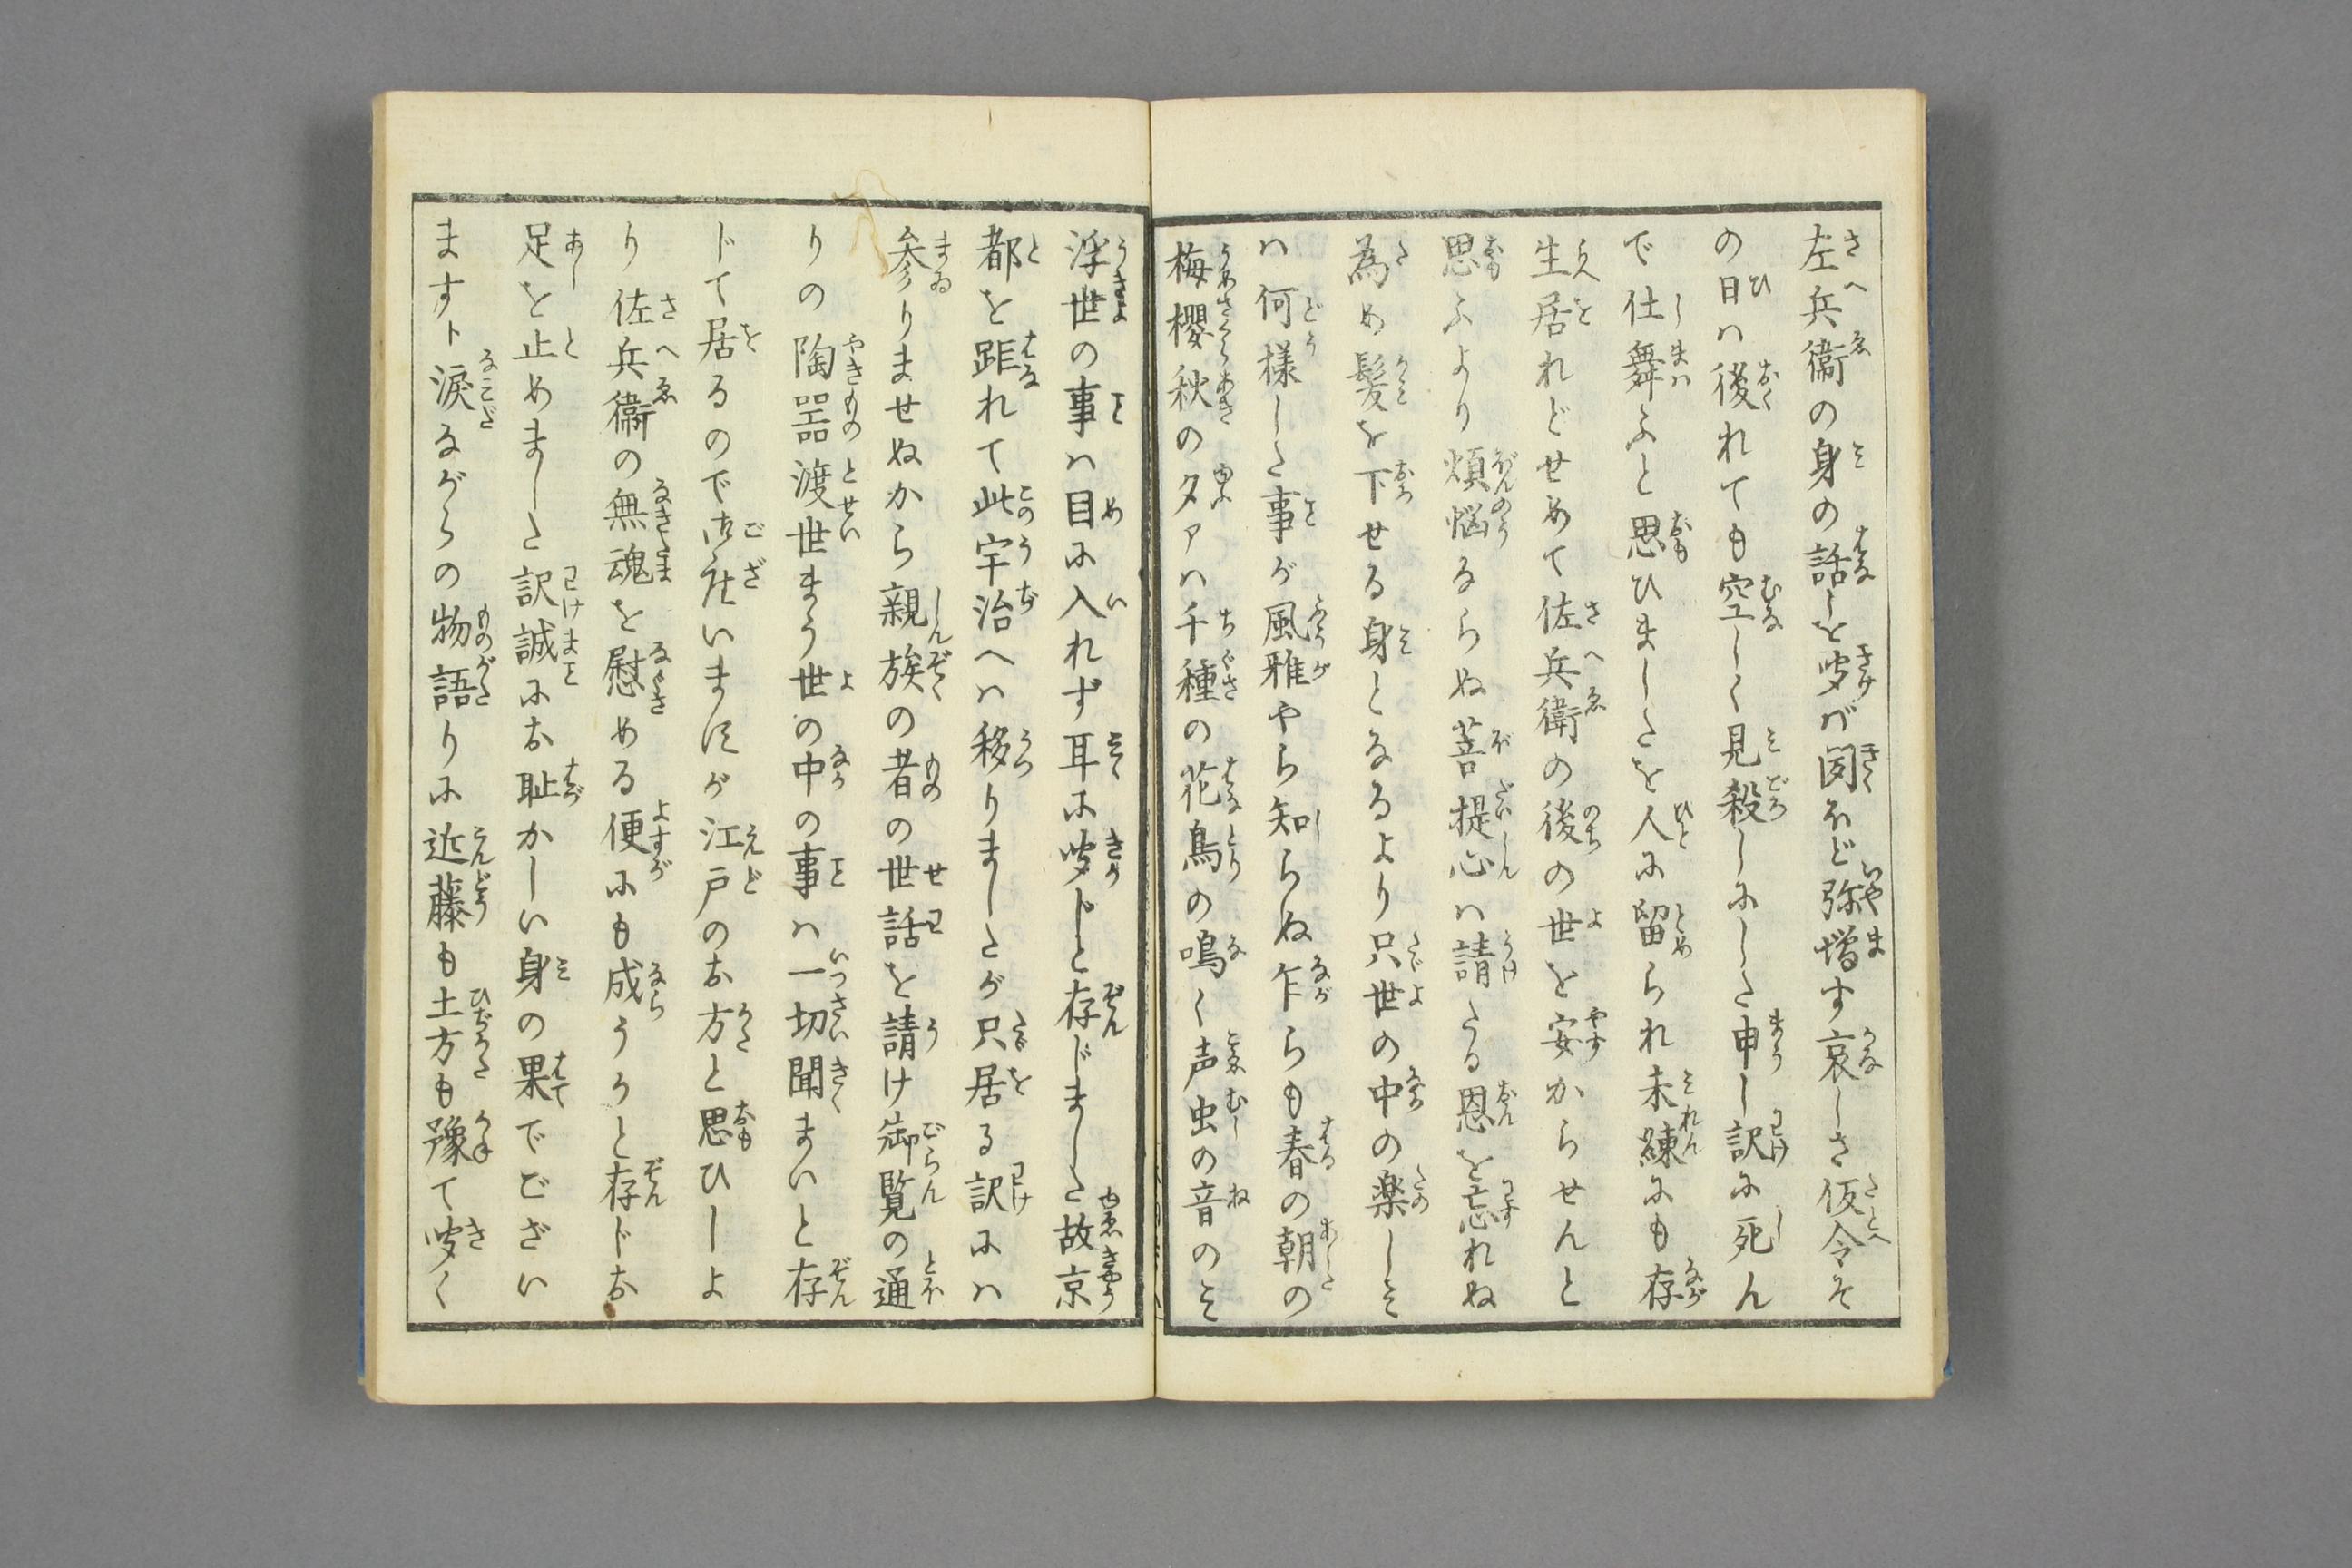 左兵衞の身の話しを聞ば聞ほど弥増す哀しさ仮令そ
の日ハ後れても空しく見殺しにした申し訳に死ん
で仕舞ふと思ひましたを人に留られ未練にも存
生居れどせめて佐兵衛の後の世を安からせんと
思ふより煩悩ならぬ菩提心ハ請たる恩を忘れぬ
為め髪を下せる身となるより只世の中の楽しみ
ハ何様した事が風雅やら知らぬ乍らも春の朝の
梅櫻秋の夕アハ千種の花鳥の鳴く声虫の音のみ
浮世の事ハ目に入れず耳に聞じと存じました故京
都を距れて此宇治へハ移りましたが只居る訳にハ
参りませぬから親族の者の世話を請け御覧の通
りの陶器渡世まう世の中の事ハ一切聞まいと存
じて居るので御在いますが江戸のお方と思ひしよ
り佐兵衞の無魂を慰める便にも成うかと存じお
足を止めました訳誠にお耻かしい身の果でござい
ますト涙ながらの物語りに近藤も土方も豫て聞く